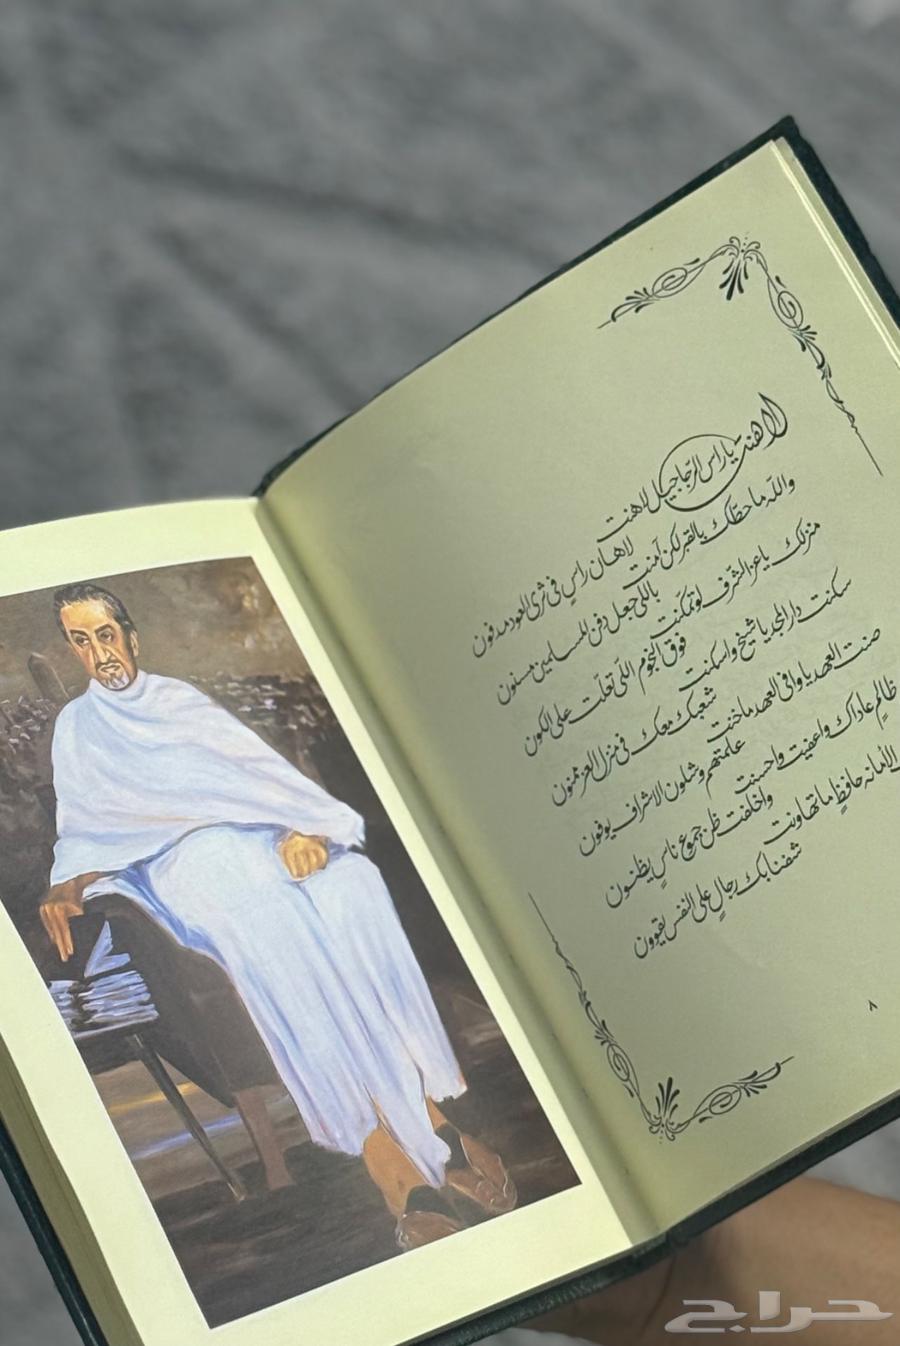 لا هنت يا راس الرجاجيل لا هنت
لا هان راسٍ في ثرى العود مدفون
والله ما حطك بالقبر لكن آمنت
باللي جعل دفن المسلمين مسنون
منزلك يا عز الشرف لو تمكنت
فوق النجوم اللي تعلت على الكون
سكنت دار المجد يا شيخ واسكنت
شعبك معك في منزل العز ممنون
صنت العهد يا وافي العهد ما خنت
علمتهم وشلون الاشراف يوفون
ظالمٍ عاداك واعفيت واحسنت
واخلفت ظن جموع ناسٍ يظنون
الأمانه حافظٍ ما تهاونت
شفنا بك رجالٍ على النفس يقوون
٨
حراج